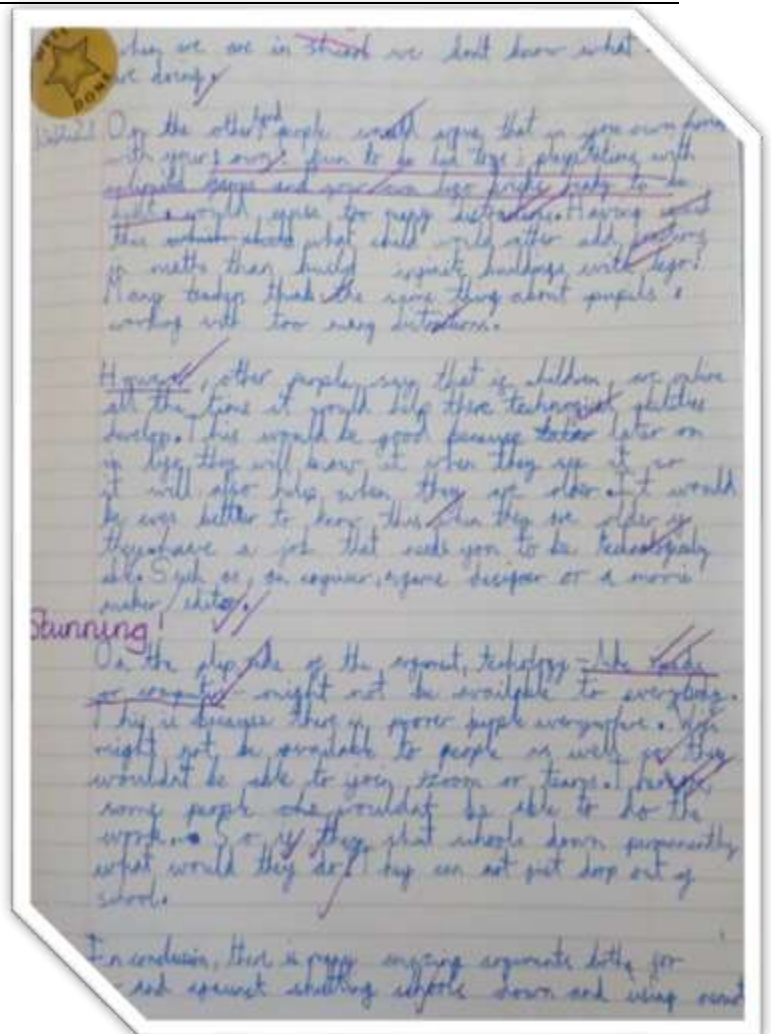 WELL DONE
when we are in school we don't know what
we doing.
On the other hand people would argue that in your own home
with your own fun to do list toys: playstation with
games and your own lego bricks ready to be
would cause too many distractions. Having
this what child would rather add
in maths than build buildings with lego!
Many think the same thing about pupils
working with too many distractions.
However, other people say that if children are online
all the time it would help there abilities
develop. This would be good because later on
in life they will know it when they see it so
it will also help when they are older. It would
be even better to know this when they are older if
they have a job that needs you to be
able. Such as, an engineer, a game designer or a movie
maker/editor.
Stunning!
On the flip side of the argument, technology - like
or computers - might not be available to everybody.
This is because there is poorer people everywhere. Wifi
might not be available to people as well so they
wouldnt be able to join zoom or teams.
some people wouldnt be able to do the
work. So if they shut schools down permanently
what would they do? They can not just drop out of
school.
In conclusion, there is many ongoing arguments both for
and against shutting schools down and using